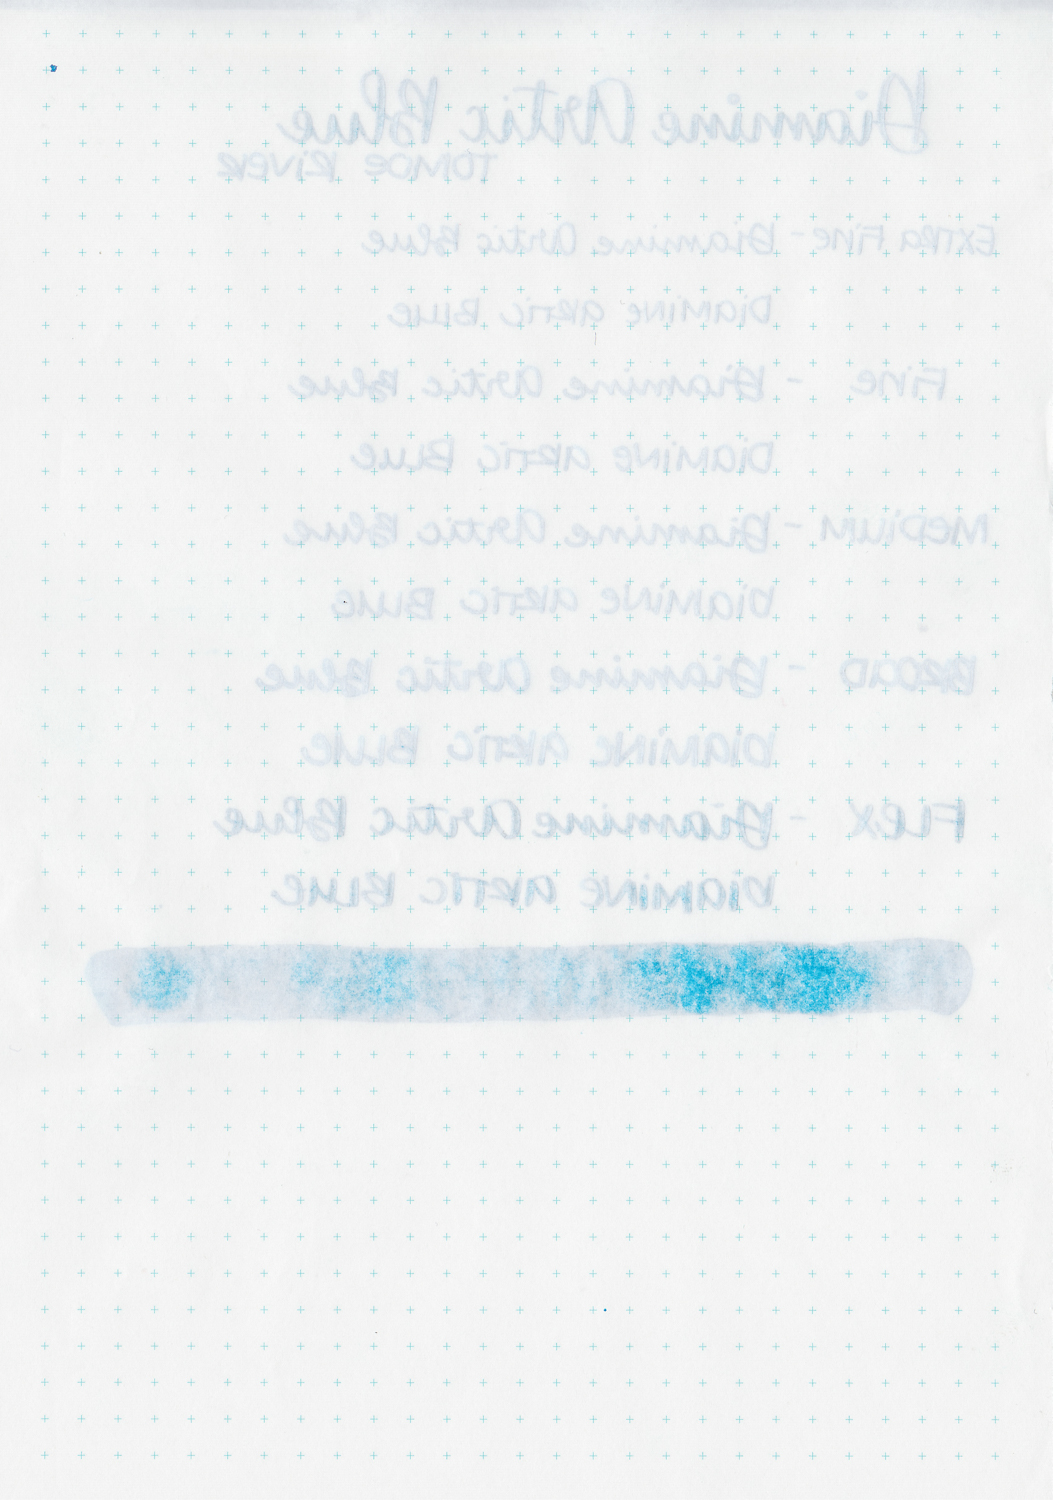 Diamine Artic Blue
TOMOE RIVER
EXTRA FINE - Diamine Artic Blue
DIAMINE ARTIC BLUE
FINE - Diamine Artic Blue
DIAMINE ARTIC BLUE
MEDIUM - Diamine Artic Blue
DIAMINE ARTIC BLUE
BROAD - Diamine Artic Blue
DIAMINE ARTIC BLUE
FLEX - Diamine Artic Blue
DIAMINE ARTIC BLUE